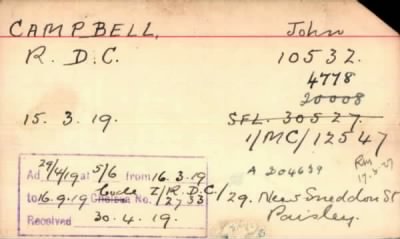 CAMPBELL, John
R. D. C. 10532.
4778
20008
15. 3. 19. SFL. 30527.
1/MC/12547
Ad. 29/4/19 at 5/6 from 16.3.19 A 204639
to 16.9.19 Chelsea No. 2733 I/R.D.C/29. New Sneddon St
Paisley.
Received 30.4.19.